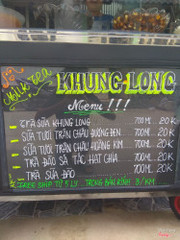 MILK TEA
KHUNG LONG
Menu !!!
TRÀ SỮA KHUNG LONG 700ML 20K
SỮA TƯƠI TRÂN CHÂU ĐƯỜNG ĐEN 700ML 20K
SỮA TƯƠI TRÂN CHÂU HOÀNG KIM 700ML 20K
TRÀ ĐÀO SẢ TẮC HẠT CHIA 700ML 20K
TRÀ SỮA ĐÀO 700ML 20K
FREE SHIP TỪ 5 LY TRONG BÁN KÍNH